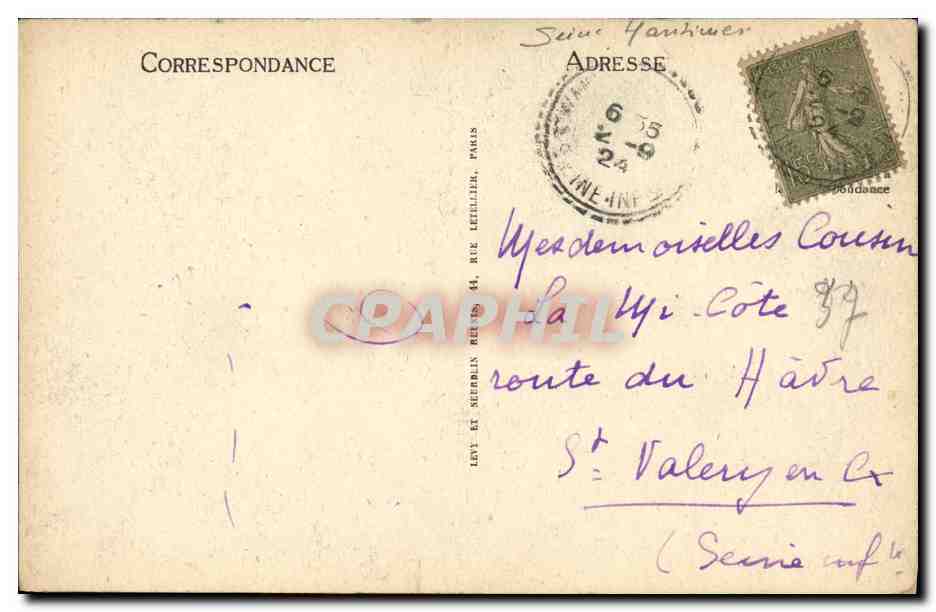 Seine Maritimes
CORRESPONDANCE
ADRESSE
6 35
24 -9
INE-INF
6 35
-9
la Correspondance
LEVY ET NEURDEIN REUNIS, 44, RUE LETELLIER, PARIS
CPAPHIL
Mesdemoiselles Cousin
La Mi-Côte 37
route du Hâvre
St Valery en Cx
(Seine infre